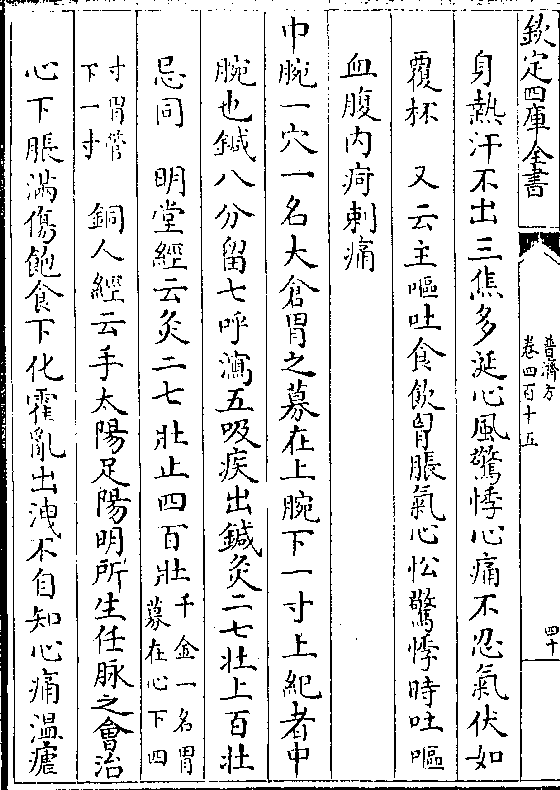 欽定四庫全書
普濟方
卷四百十五
四十
身熱汗不出三焦多涎心風驚悸心痛不忍氣伏如
覆杯　又云主嘔吐食飲胷脹氣心忪驚悸時吐嘔
血腹内疞刺痛
中腕一穴一名大倉胃之募在上腕下一寸上紀者中
腕也鍼八分留七呼瀉五吸疾出鍼灸二七壯上百壯
忌同　明堂經云灸二七壯止四百壯千金一名胃募在心下四
寸胃管下一寸　銅人經云手太陽足陽明所生任脉之會治
心下脹滿傷飽食下化霍亂出洩不自知心痛温瘧